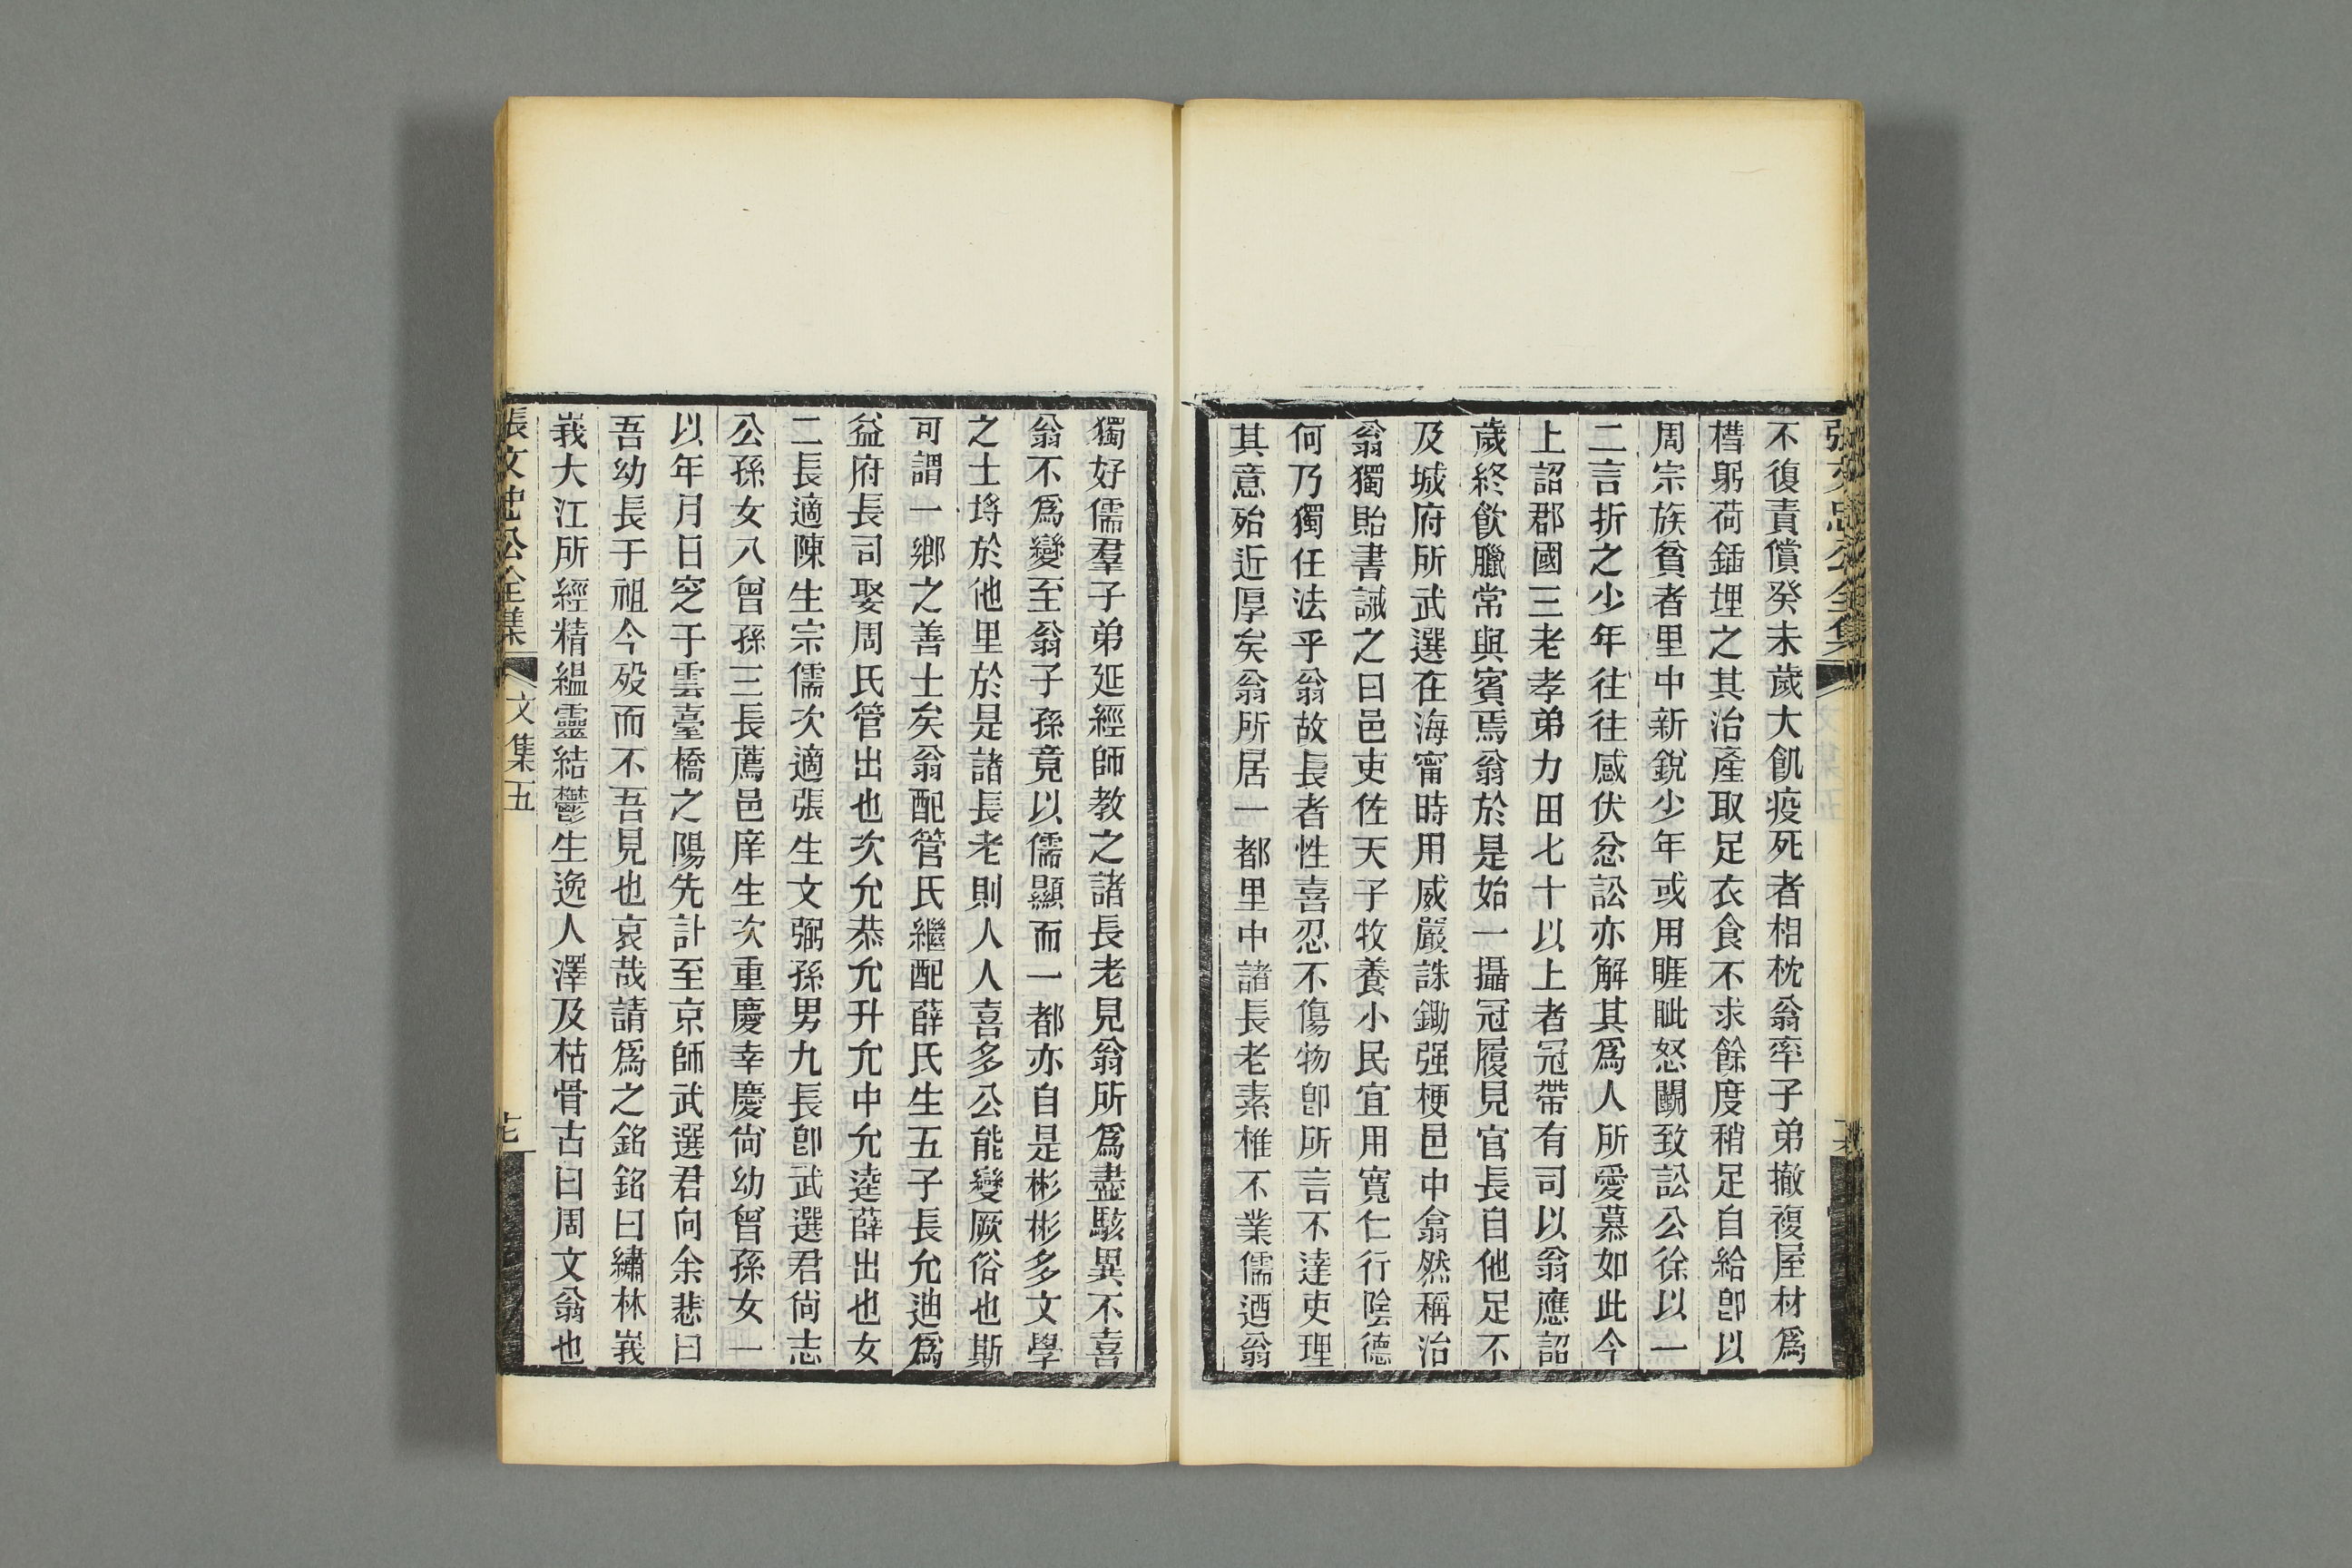 張文忠公全集
不復責償癸未歲大飢疫死者相枕翁率子弟撤複屋材爲
槥躬荷鍤埋之其治產取足衣食不求餘度稍足自給卽以
周宗族貧者里中新銳少年或用睚眦怒鬬致訟公徐以一
二言折之少年往往感伏忿訟亦解其爲人所愛慕如此今
上詔郡國三老孝弟力田七十以上者冠帶有司以翁應詔
歲終飮臘常與賓焉翁於是始一攝冠履見官長自他足不
及城府所武選在海甯時用威嚴誅鋤强梗邑中翕然稱治
翁獨貽書誡之曰邑吏佐天子牧養小民宜用寬仁行陰德
何乃獨任法乎翁故長者性喜忍不傷物卽所言不達吏理
其意殆近厚矣翁所居一都里中諸長老素椎不業儒迺翁
獨好儒羣子弟延經師教之諸長老見翁所爲盡駭異不喜
翁不爲變至翁子孫竟以儒顯而一都亦自是彬彬多文學
之士埓於他里於是諸長老則人人喜多公能變厥俗也斯
可謂一鄉之善士矣翁配管氏繼配薛氏生五子長允迪爲
益府長司娶周氏管出也次允恭允升允中允逵薛出也女
二長適陳生宗儒次適張生文弼孫男九長卽武選君尙志
公孫女八曾孫三長薦邑庠生次重慶幸慶尙幼曾孫女一
以年月日窆于雲臺橋之陽先計至京師武選君向余悲曰
吾幼長于祖今歿而不吾見也哀哉請爲之銘銘曰繡林峩
峩大江所經精縕靈結鬱生逸人澤及枯骨古曰周文翁也
張文忠公全集
文集五
七